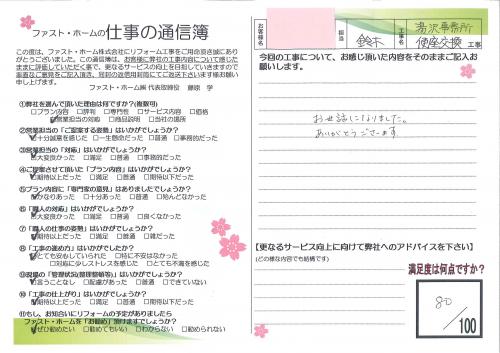 ファスト・ホームの仕事の通信簿
この度は、ファスト・ホーム株式会社にリフォーム工事をご用命頂き誠にありがとうございました。この通信簿は、お客様に弊社の工事内容について感じたままに評価していただく事で、更なるサービスの向上を目指していきますので率直なご意見をご記入頂き、別封の返信用封筒にてご送付下さいます様お願い申し上げます。
ファスト・ホーム㈱ 代表取締役 藤原 学
①弊社を選んで頂いた理由は何ですか?(複数可)
□プラン内容 □評判 □専門性 □サービス内容 □価格
□営業担当の対応 □商品説明 □当社の場所
②営業担当の「ご提案する姿勢」はいかがでしょうか?
□十分誠意を感じた □一生懸命だった □普通 □事務的だった
③営業担当の「対応」はいかがでしょうか?
□大変良かった □満足 □普通 □事務的だった
④ご提案させて頂いた「プラン内容」はいかがでしょうか?
□期待以上だった □満足 □普通 □期待以下だった
⑤プラン内容に「専門家の意見」はありましたか?
□かなりあった □十分あった □普通 □殆んどなかった
⑥「職人の対応」はいかがでしょうか?
□大変良かった □満足 □普通 □良くなかった
⑦「職人の仕事の姿勢」はいかがでしょうか?
□期待以上だった □満足 □普通 □雑だった
⑧「工事の進め方」はいかがでしたか?
□とても安心していられた □特に不安はなかった
□対応に少しストレスを感じた □とても不満を感じた
⑨現場の「管理状況(整理整頓等)」はいかがでしたか?
□言うことなし □配慮があった □普通 □できていない
⑩「工事の仕上がり」はいかがでしょうか?
□期待以上だった □満足 □普通 □期待以下だった
⑪もし、お知合いにリフォームの予定がありましたら
ファスト・ホームを「お勧め」頂けますでしょうか?
□ぜひ勧めたい □勧めてもいい □わからない □勧められない
お客様名
担当 鈴木
工事名 湯沢事務所
便座交換 工事
今回の工事について、お感じ頂いた内容をそのままご記入お願いします。
お世話になりました。
ありがとうございます
【更なるサービス向上に向けて弊社へのアドバイスを下さい】
(どの様な内容でも結構です)
満足度は何点ですか?
80
/100